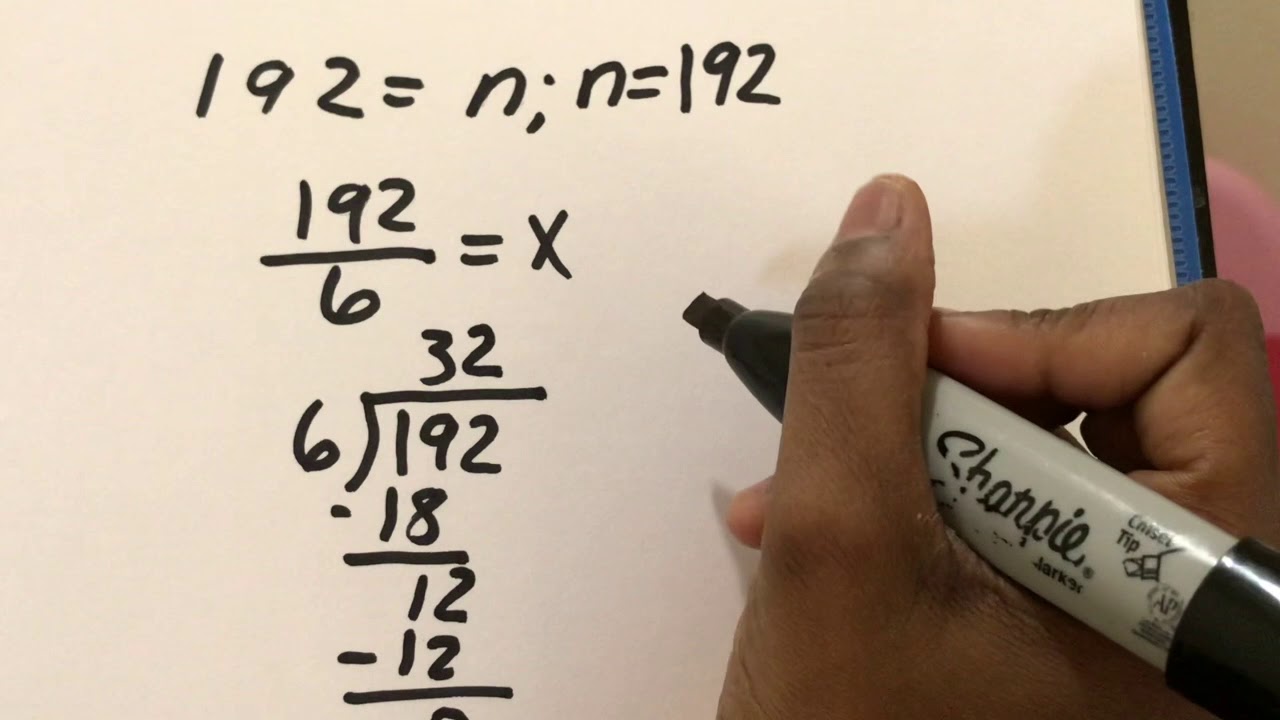 192 = n; n=192
192
6
= X
32
6 192
- 18
12
- 12
Sharpie®
Chisel
Tip
AP